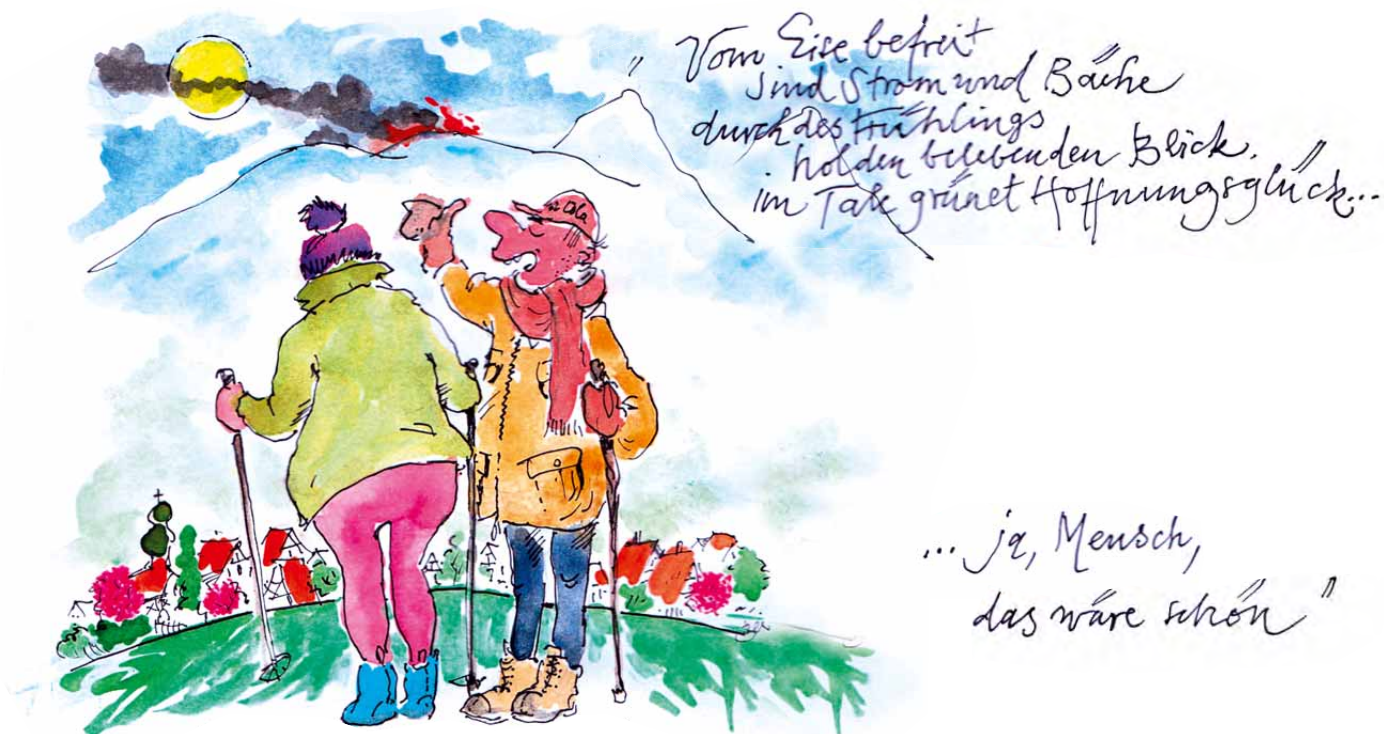 "Vom Eise befreit
sind Strom und Bäche
durch des Frühlings
holden belebenden Blick.
im Tale grünet Hoffnungsglück...
... ja, Mensch,
das wäre schön"